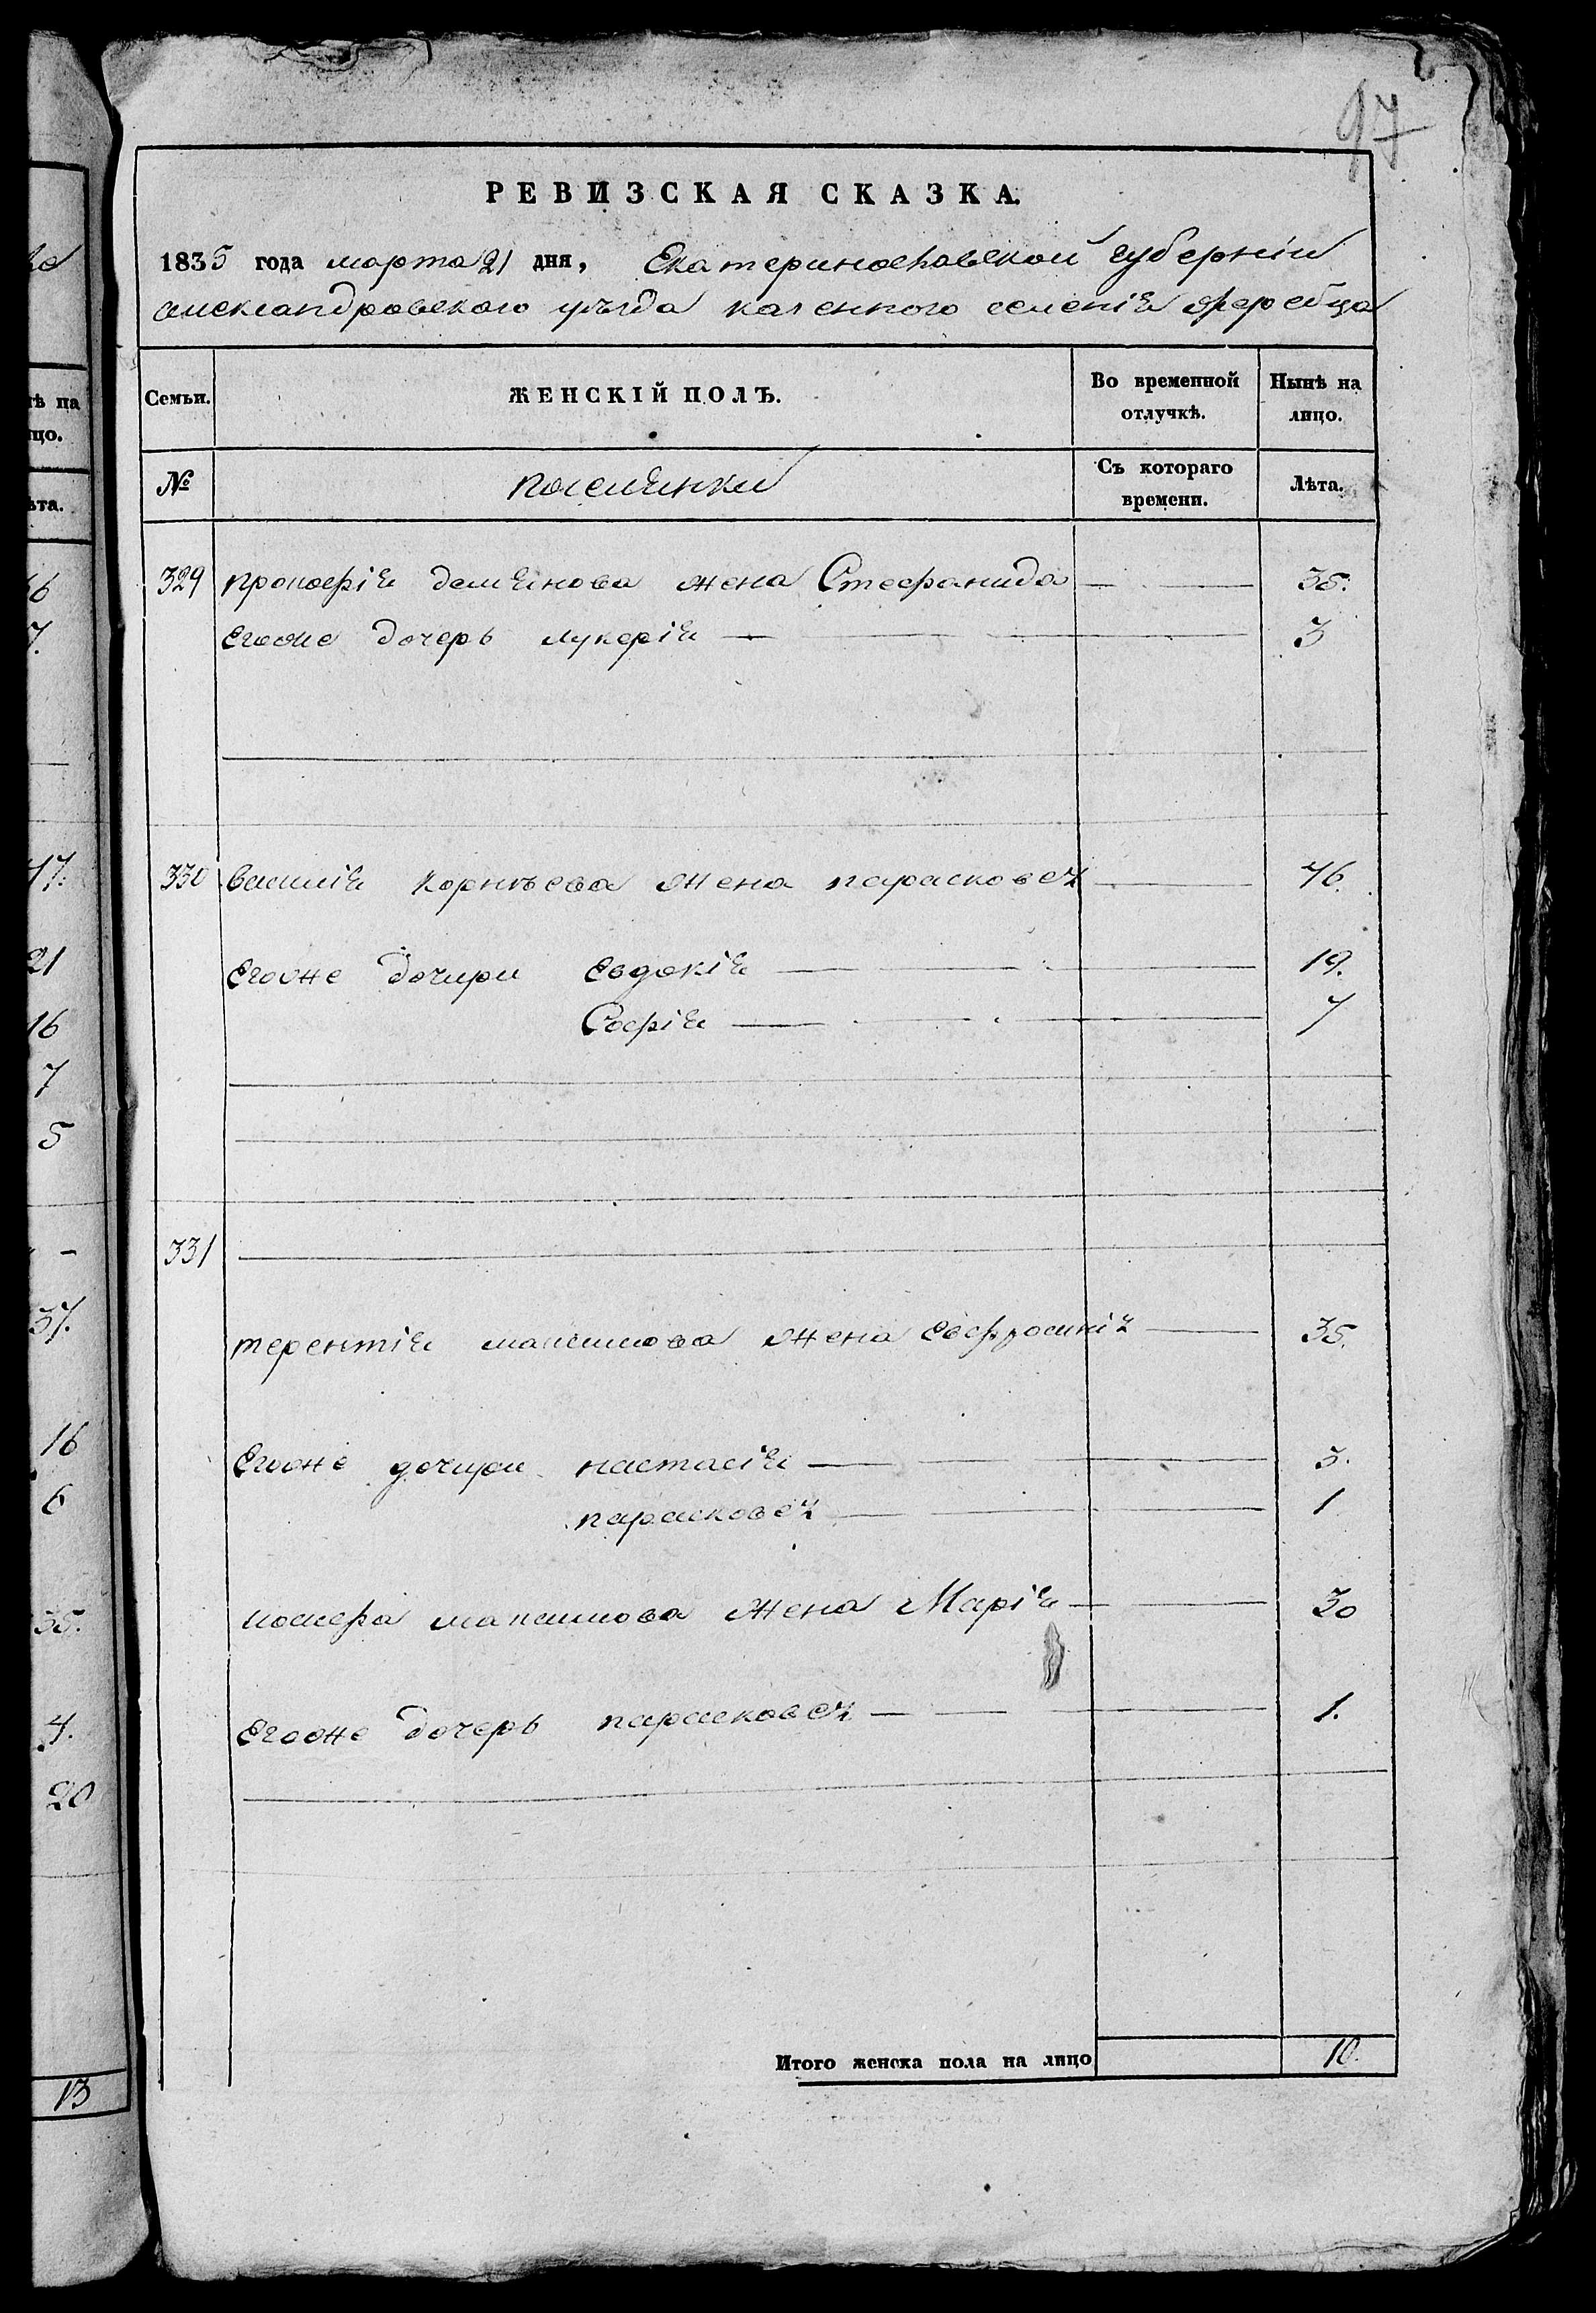 97
РЕВИЗСКАЯ СКАЗКА.
1835 года марта 21 дня, Екатеринославской губерніи
александровского уѣзда казенного селенія Жеребца
Семьи. ЖЕНСКІЙ ПОЛЪ. Во временной отлучкѣ. Нынѣ на лицо.
№ поселянки Съ котораго времени. Лѣта.
329 прокофія демянова жена Стефанида — 35.
Егоже дочерь лукерія — 3
330 василія корнѣева жена парасковея — 46.
Егоже дочири евдокія — 19.
Софія — 7
331
терентія максимова жена евфросинія — 35.
Егоже дочири настасія — 5.
парасковея — 1
максимова жена Марія — 30
Егоже дочерь парасковея — 1.
Итого женска пола на лицо 10.
ѣ на
цо.
ѣта.
6
7.
47.
21
16
7
5
37.
16
6
35.
4.
20
13